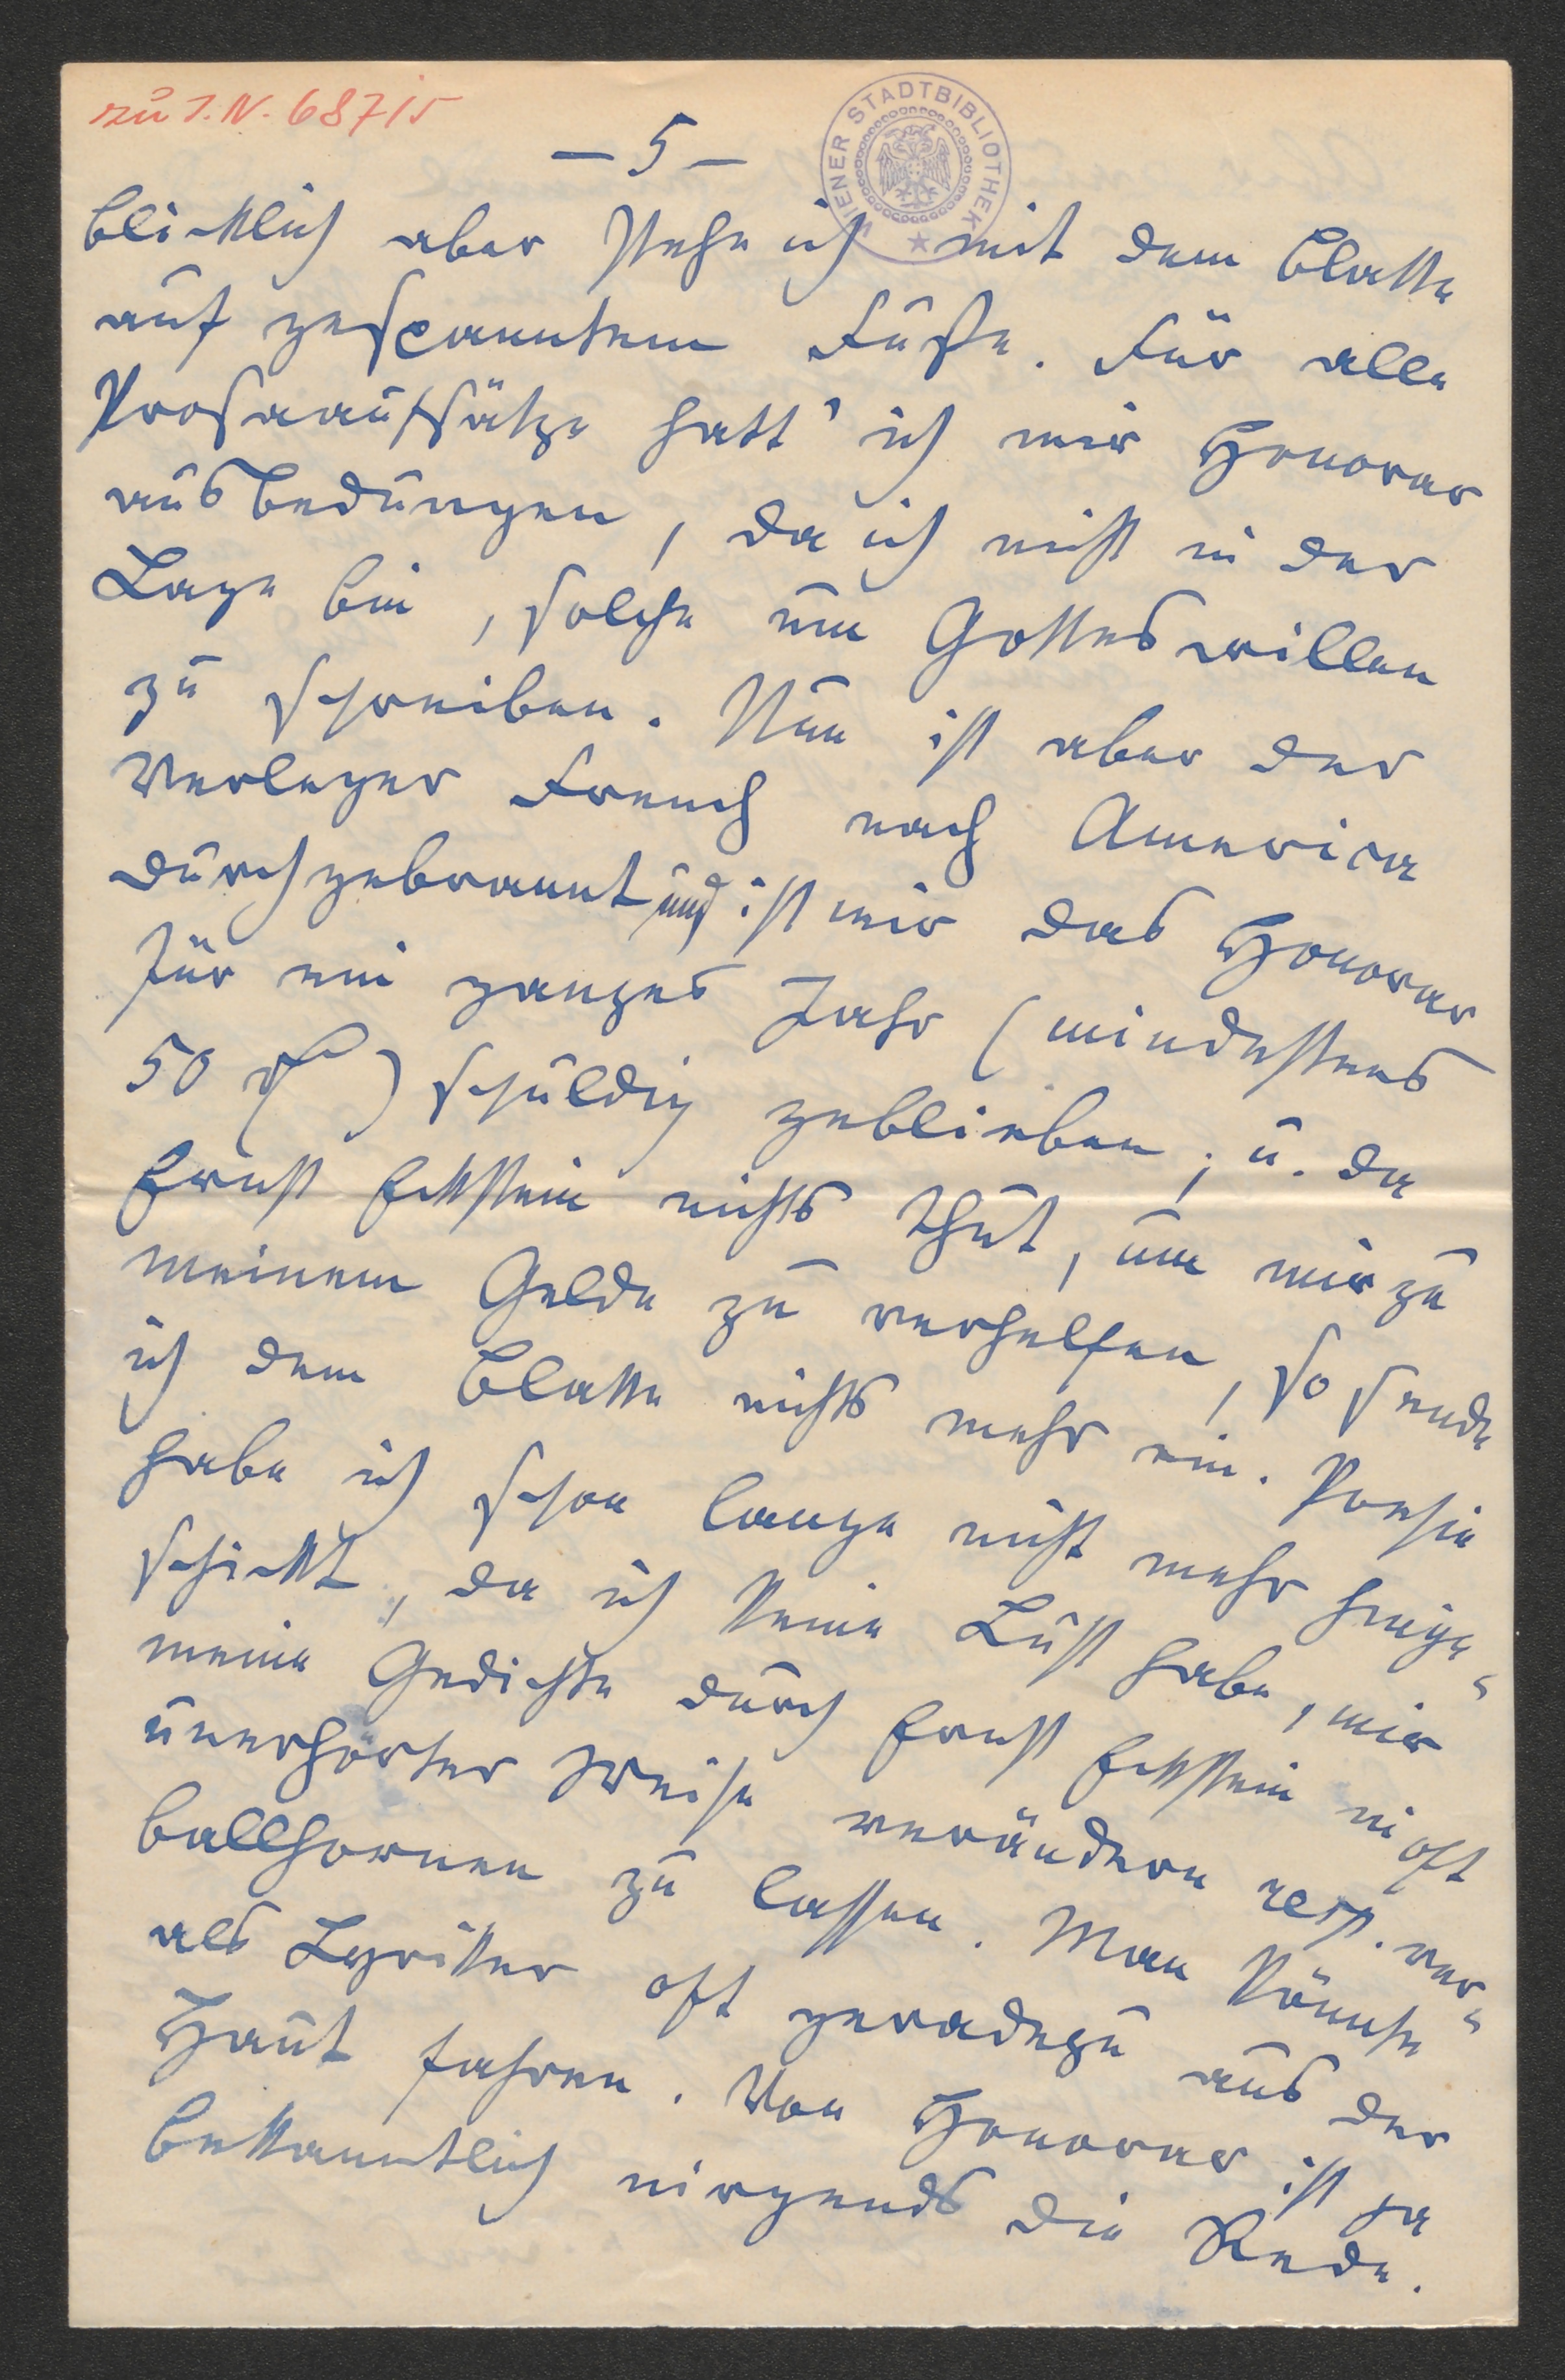 zu I.N. 68715
WIENER STADTBIBLIOTHEK
- 5 -
blicklich aber stehe ich mit dem Blatte
auf gespanntem Fuße. Für alle
Prosaaufsätze hatt' ich mir Honorar
ausbedungen, da ich nicht in der
Lage bin, solche um Gotteswillen
zu schreiben. Nun ist aber der
Verleger French nach America
durchgebrannt und ist mir das Honorar
für ein ganzes Jahr (mindestens
50 fl) schuldig geblieben; u. da
Ernst Eckstein nichts thut, um mir zu
meinem Gelde zu verhelfen, so sende
ich dem Blatte nichts mehr ein. Poesie
habe ich schon lange nicht mehr hinge-
schickt, da ich keine Lust habe, mir
meine Gedichte durch Ernst Eckstein in oft
unerhörter Weise verändern resp. ver-
ballhornen zu lassen. Man könnte
als Lyriker oft geradezu aus der
Haut fahren. Von Honorar ist ja
bekanntlich nirgends die Rede.